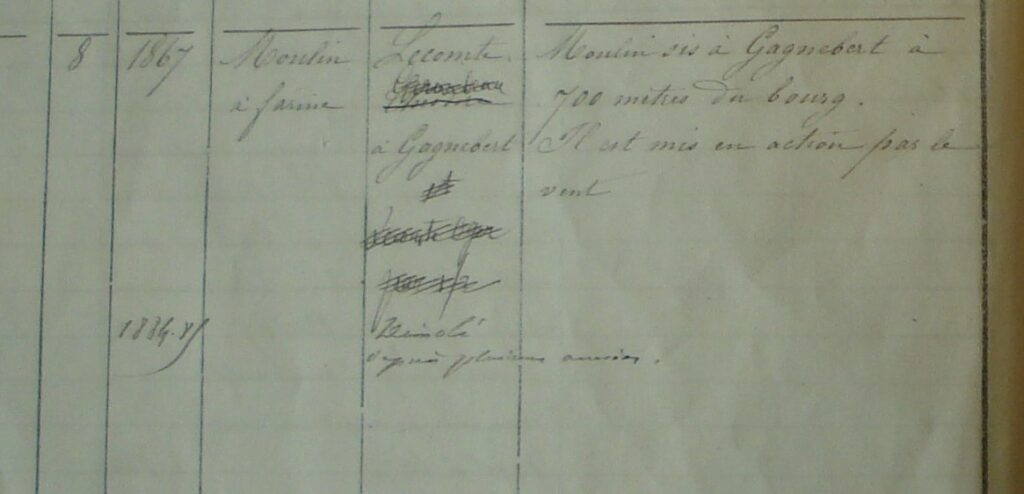 8 1867 Moulin Lecomte Moulin sis à Gagnebert à
à farine 700 mètres du bourg.
à Gagnebert Il est mis en action par le
et vent
Démoli
depuis plusieurs années.